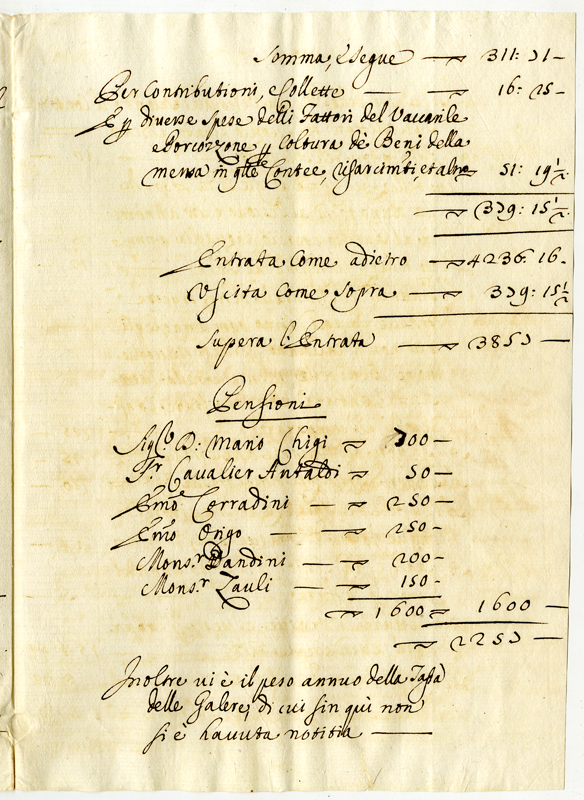 Somma, e segue — 311: 71 —
Per Contributioni, e Collette — — 16: 25 —
E p diverse spese delli Fattori del Vaccarile
e Porcozzone p Coltura de Beni della
mensa in qlle Contee, risarcimti, et altro 51: 19½
— 379: 15½
Entrata come adietro — 4236: 16 -
Uscita come sopra — 379: 15½
Supera l'Entrata — 3857 —
Pensioni
Sigr D: Mario Chigi 700 —
Fr. Cavalier Antaldi 50 —
Emo Corradini — 250 —
Emo Origo — — 250 -
Mons.r Dandini — 200 —
Mons.r Zauli — 150 -
1600 1600 —
2257 —
Inoltre vi è il peso annuo della Tassa
delle Galere, di cui sin qui non
si è havuta notitia —